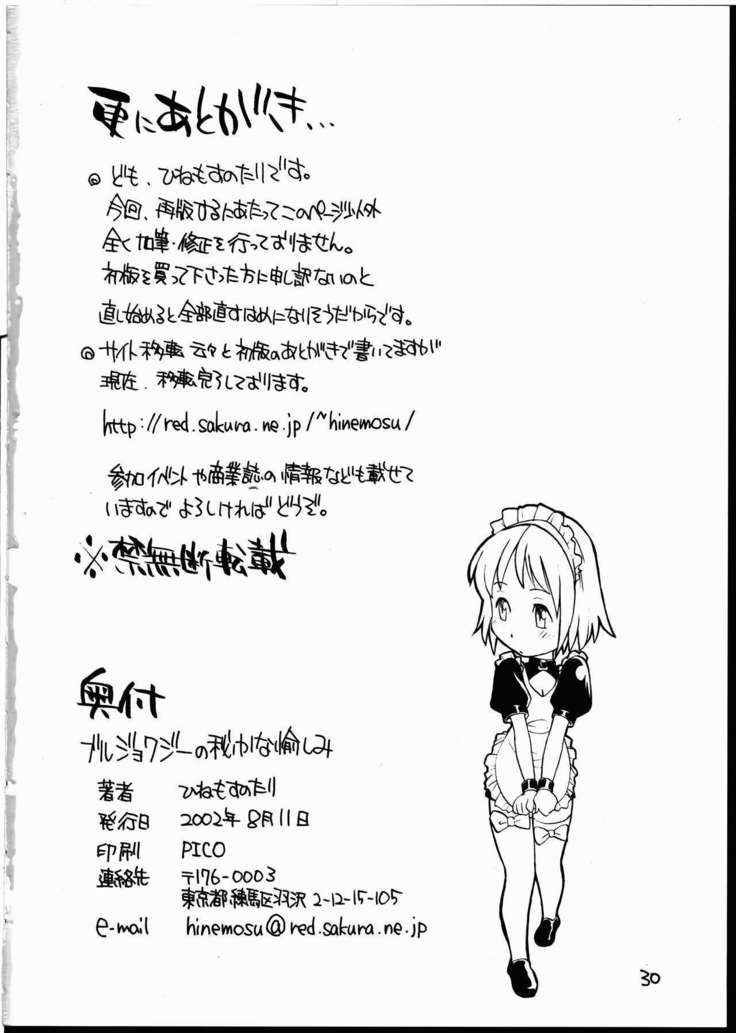 更にあとがき...
◎ ども、ひねもすのたりです。
今回、再版するにあたってこのページ以外
全く加筆・修正を行っておりません。
初版を買って下さった方に申し訳ないのと
直し始めると全部直すはめになりそうだからです。
◎ サイト移転 云々と初版のあとがきで書いてますが
現在、移転完了しております。
http://red.sakura.ne.jp/~hinemosu/
参加イベントや商業誌の情報なども載せて
いますので よろしければ どうぞ。
※禁無断転載
奥付
ブルジョワジーの秘かな愉しみ
著者 ひねもすのたり
発行日 2002年8月11日
印刷 PICO
連絡先 〒176-0003
東京都練馬区羽沢 2-12-15-105
e-mail hinemosu@red.sakura.ne.jp
30